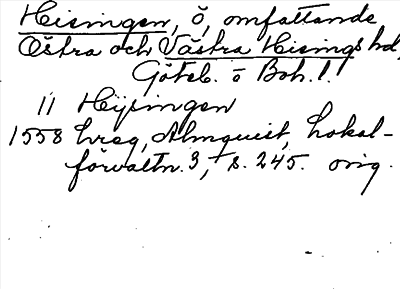 Hisingen, ö, omfattande
Östra och Västra Hisings hd,
Göteb. o Boh. l.
ll Hijsingen
1558 hreg, Almquist, Lokal-
förvaltn. 3, s. 245. orig.